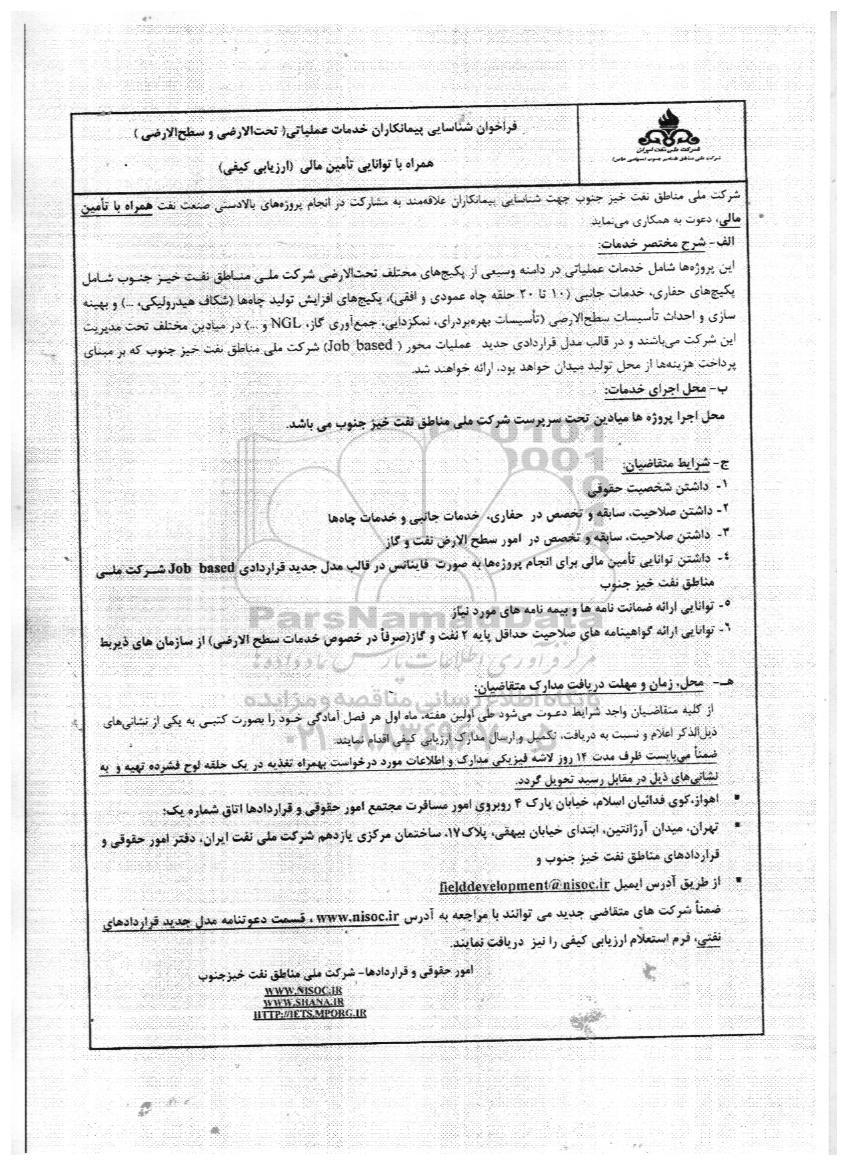 فراخوان شناسایی پیمانکاران خدمات عملیاتی( تحت‌الارضی و سطح‌الارضی )
همراه با توانایی تأمین مالی (ارزیابی کیفی)
شرکت ملی نفت ایران
شرکت ملی مناطق نفتخیز جنوب (سهامی خاص)
شرکت ملی مناطق نفت خیز جنوب جهت شناسایی پیمانکاران علاقه‌مند به مشارکت در انجام پروژه‌های بالادستی صنعت نفت همراه با تأمین
مالی، دعوت به همکاری می‌نماید.
الف- شرح مختصر خدمات:
این پروژه‌ها شامل خدمات عملیاتی در دامنه وسیعی از پکیج‌های مختلف تحت‌الارضی شرکت ملی مناطق نفت خیز جنوب شامل
پکیج‌های حفاری، خدمات جانبی (۱۰ تا ۲۰ حلقه چاه عمودی و افقی)، پکیج‌های افزایش تولید چاه‌ها (شکاف هیدرولیکی، ...) و بهینه
سازی و احداث تأسیسات سطح‌الارضی (تأسیسات بهره‌برداری، نمکزدایی، جمع‌آوری گاز، NGL و ...) در میادین مختلف تحت مدیریت
این شرکت می‌باشند و در قالب مدل قراردادی جدید عملیات محور ( Job based) شرکت ملی مناطق نفت خیز جنوب که بر مبنای
پرداخت هزینه‌ها از محل تولید میدان خواهد بود، ارائه خواهند شد.
ب- محل اجرای خدمات:
محل اجرا پروژه ها میادین تحت سرپرست شرکت ملی مناطق نفت خیز جنوب می باشد.
ج- شرایط متقاضیان:
۱- داشتن شخصیت حقوقی
۲- داشتن صلاحیت، سابقه و تخصص در حفاری، خدمات جانبی و خدمات چاه‌ها
۳- داشتن صلاحیت، سابقه و تخصص در امور سطح الارض نفت و گاز
۴- داشتن توانایی تأمین مالی برای انجام پروژه‌ها به صورت فاینانس در قالب مدل جدید قراردادی Job based شرکت ملی
مناطق نفت خیز جنوب
۵- توانایی ارائه ضمانت نامه ها و بیمه نامه های مورد نیاز
۶- توانایی ارائه گواهینامه های صلاحیت حداقل پایه ۲ نفت و گاز(صرفاً در خصوص خدمات سطح الارضی) از سازمان های ذیربط
هـ- محل، زمان و مهلت دریافت مدارک متقاضیان:
از کلیه متقاضیان واجد شرایط دعوت می‌شود طی اولین هفته، ماه اول هر فصل آمادگی خود را بصورت کتبی به یکی از نشانی‌های
ذیل‌الذکر اعلام و نسبت به دریافت، تکمیل و ارسال مدارک ارزیابی کیفی اقدام نمایند.
ضمناً می‌بایست ظرف مدت ۱۴ روز لاشه فیزیکی مدارک و اطلاعات مورد درخواست بهمراه تغذیه در یک حلقه لوح فشرده تهیه و به
نشانی‌های ذیل در مقابل رسید تحویل گردد.
▪ اهواز،کوی فدائیان اسلام، خیابان پارک ۴ روبروی امور مسافرت مجتمع امور حقوقی و قراردادها اتاق شماره یک؛
▪ تهران، میدان آرژانتین، ابتدای خیابان بیهقی، پلاک۱۷، ساختمان مرکزی یازدهم شرکت ملی نفت ایران، دفتر امور حقوقی و
قراردادهای مناطق نفت خیز جنوب و
▪ از طریق آدرس ایمیل fielddevelopment@nisoc.ir
ضمناً شرکت های متقاضی جدید می توانند با مراجعه به آدرس www.nisoc.ir ، قسمت دعوتنامه مدل جدید قراردادهای
نفتی، فرم استعلام ارزیابی کیفی را نیز دریافت نمایند.
امور حقوقی و قراردادها- شرکت ملی مناطق نفت خیزجنوب
WWW.NISOC.IR
WWW.SHANA.IR
HTTP://IETS.MPORG.IR
ParsNamadData
مرکز فرآوری اطلاعات پارس نماد داده ها
پایگاه اطلاع رسانی مناقصه و مزایده
۰۲۱-۸۸۳۴۹۶۷۰